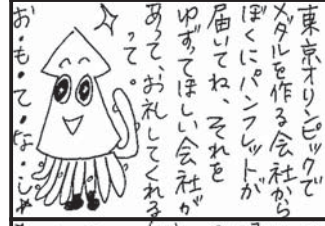 東京オリンピックで
メダルを作る会社から
ぼくにパンフレットが
届いてね、それを
ゆずってほしい会社が
あって、お礼してくれる
って。
お・も・て・な・し